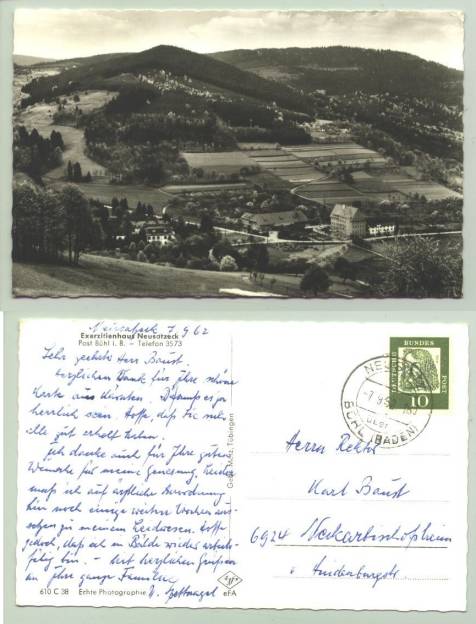 Exerzitienhaus Neusatzeck
Post Bühl i. B. – Telefon 3573
Neusatzeck 7.9.62
Sehr geehrter Herr Baust.
Herzlichen Dank für Ihre schöne
Karte aus Kroatien.
herrlich sein. Hoffe, daß Sie sich
gut erholt haben.
Ich danke auch für Ihre guten
Wünsche für meine Genesung. Leider
muß ich auf ärztliche Anordnung
hin noch einige weitere Wochen aus-
zu meinem Leidwesen. Hoffe
jedoch, daß ich in Bälde wieder arbeits-
fähig bin. – Mit herzlichen Grüßen
an Ihre ganze Familie
610 C 38 Echte Photographie eFA
Gebr. Metz, Tübingen
DEUTSCHE BUNDESPOST
10
BÜHL (BADEN)
Herrn Rektor
Karl Baust
6924 Neckarbischofsheim
Hindenburgstr.